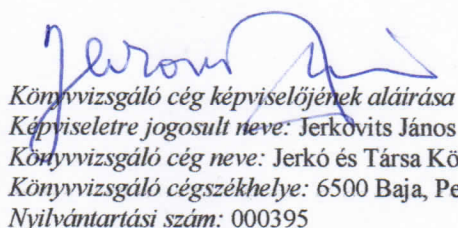 Könyvvizsgáló cég képviselőjének aláírása
Képviseletre jogosult neve: Jerkovits János
Könyvvizsgáló cég neve: Jerkó és Társa Kö
Könyvvizsgáló cégszékhelye: 6500 Baja, Pe
Nyilvántartási szám: 000395